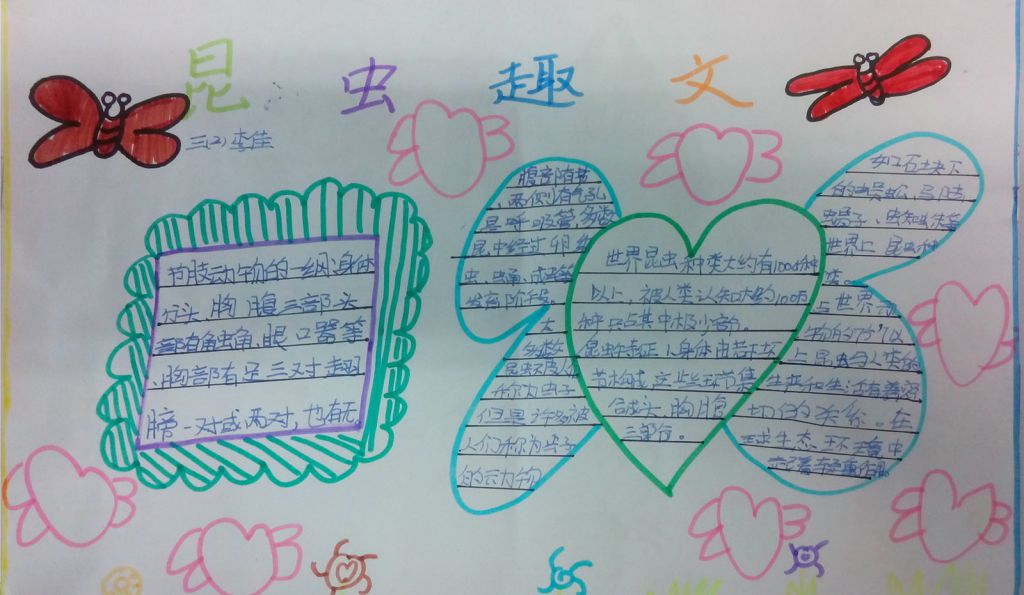 昆虫趣文
三(2) 李佳
节肢动物的一纲,身体
分头、胸、腹三部,头
部有触角、眼、口器等
、胸部有足三对,翅
膀一对或两对,也有无
腹部有节
,两侧有气孔
是呼吸
昆虫经过卵、幼
虫、蛹、成虫等
发育阶段。
大
多数
昆虫被人们
称为虫子
但是许多被
人们称为虫子
的动物
世界昆虫种类大约有1000种
以上,被人类认知大约100万
种,占其中极小部。
昆虫
身体由若干环
节构成,这些环节集
合成头、胸、腹
三部分。
如石块下
的
世界上昆虫种
类
与世界动
物的
上昆虫与人类
生产和生活有着密
切的关系。在
生态环境中